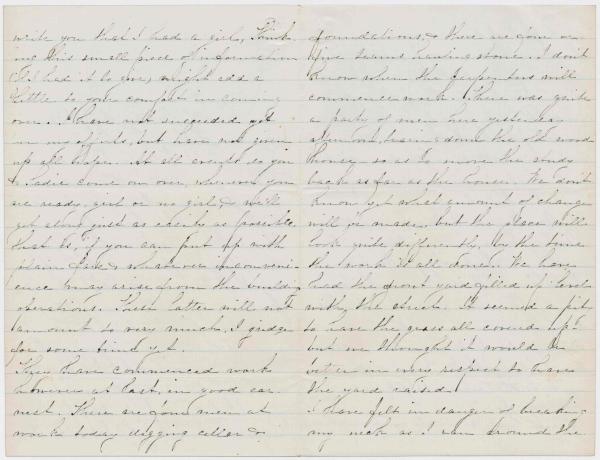 write you that I had a girl, think-
ing this small piece of information
(if I had it to give) might add a
little to your comfort in coming
over. I have not succeeded yet
in my efforts, but have not given
up all hope. At all events do you
& Sadie come on over, whenever you
are ready, girl or no girl, & we'll
get along just as easily as possible,
that is, if you can put up with
plain fare & whatever inconveni-
ence may arise from the building
operations. These latter will not
amount to very much I judge
for some time yet.
They have commenced work
however at last, in good ear-
nest. There are four men at
work today digging cellar &
foundations, & there are four or
five teams hauling stone. I don't
know when the carpenters will
commence work. There was quite
a party of men here yesterday
afternoon, tearing down the old wood
house, so as to move the
back as far as the house. We don't
know yet what amount of change
will be made, but the place will
look quite differently, by the time
the work is all done. We have
had the front yard filled up level
with the street. It seemed a pity
to have the grass all covered up
but we thought it would be
better in every respect to have
the yard raised.
I have felt in danger of breaking
my neck as I ran around the